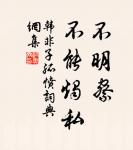 不明察
不能燭私
韓非子孤憤詞典
網集